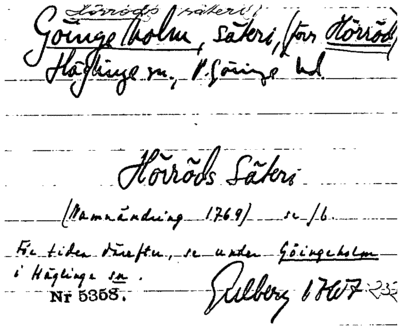 Hörröds säteri
Göingeholm, säteri, (förr Hörröd)
Häglinge sn., V. Göinge hd.
Hörröds Säteri
(Namnändring 1769) se /b.
För tiden därefter, se under Göingeholm
i Häglinge sn.
Nr 5358. Gillberg 1767 232